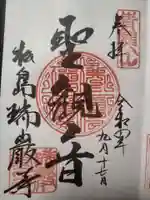 奉拝
令和四年
九月十七日
聖観音
松島瑞巌寺